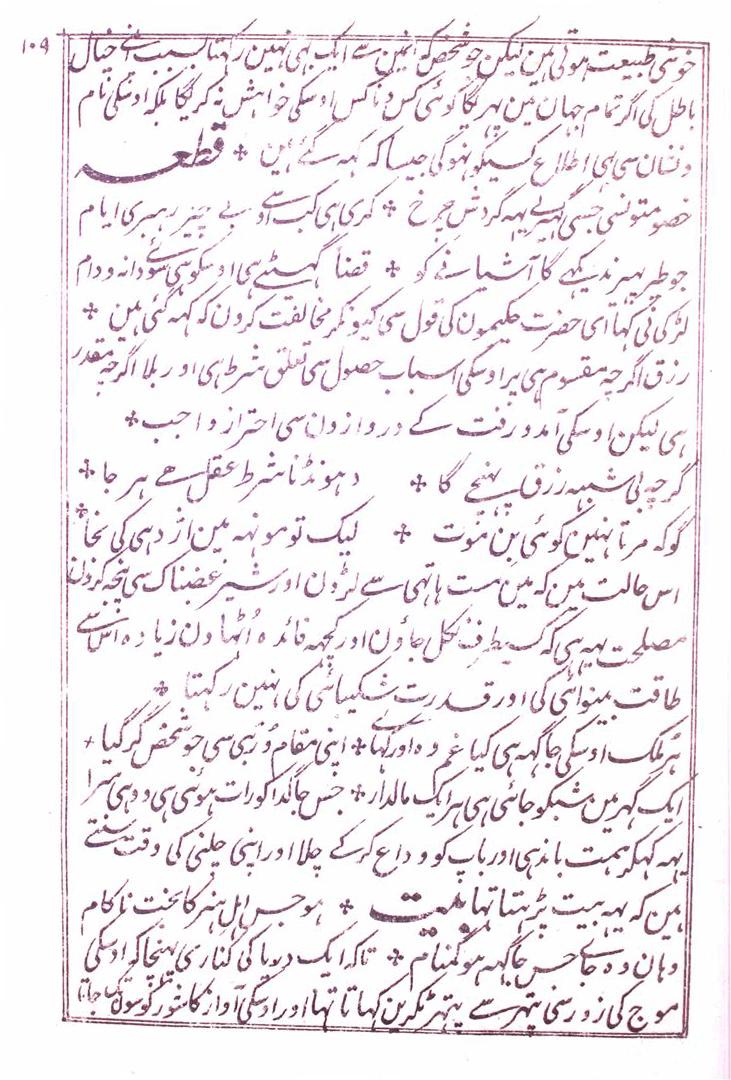 ۱۰۹
خوشی طبیعت ہوتی ہین لیکن جو شخص کہ انمین سے ایک بہی نہین رکہتا بسبب اپنے خیال
باطل کی اگر تمام جہان مین پہریگا کوئی کس و ناکس اوسکی خواہش نہ کریگا بلکہ اوسکی نام
و نشان سی بہی اطلاع کسیکو نہوگی جیسا کہ کہہ گئے ہین ؞ قطعہ
خصومتونسی جسکی پہرے یہہ گردش چرخ ؞ کری ہی کب اوسے بے چیز رہبری ایام
جو طیر پہر ندیکہے گا آشیانے کو ؞ قضا گہسٹے ہی اوسکو سی سوئے دانہ و دام
لڑکی نی کہا ای حضرت حکیمون کی قول سی کیونکر مخالفت کرون کہ کہہ گئی ہین ؞
رزق اگرچہ مقسوم ہی پر اوسکی اسباب حصول سی تعلق شرط ہی اور بلا اگرچہ مقدر
ہی لیکن اوسکی آمد و رفت کے دروازون سی احتراز واجب ؞
گرچہ بی شبہہ رزق پہنچے گا ؞ دہونڈنا شرط عقل ہے ہر جا ؞
گو کہ مرتا نہین کوئی بن موت ؞ لیک تو مونہہ مین اژدہی کی نجا ؞
اس حالت مین کہ مین مست ہاتہی سے لڑون اور شیر غضبناک سی پنجہ کرون
مصلحت یہہ ہی کہ کسیطرف نکل جاؤن اور کچہہ فائدہ اُٹہاون زیادہ اس سے
طاقت بینوائی کی اور قدرت شکیبائی کی نہین رکہتا ؞
ہر ملک اوسکی جاگہہ ہی کیا غم وہ اور کہائے ؞ اپنی مقام و زبی سی جو شخص گر گیا ؞
ایک گہر مین شبکو جائی ہی ہر ایک مالدار ؞ جس جا گدا کو رات ہوئی ہی وہی سرا
یہہ کہکر ہمت باندہی اور باپ کو وداع کر کے چلا اور اپنی چلنی کی وقت سنتے
ہین کہ یہہ بیت پڑہتا تہا بیت ؞ ہو جس اہل ہنر کا بخت ناکام
وہان وہ جائے جس جاگہہ ہو گمنام ؞ تاکہ ایک دریا کی کناری پہنچا کہ اوسکی
موج کی زور سی پتہر سے پتہر ٹکرین کہاتا تہا اور اوسکی آواز کا شور کوسون تک جاتا